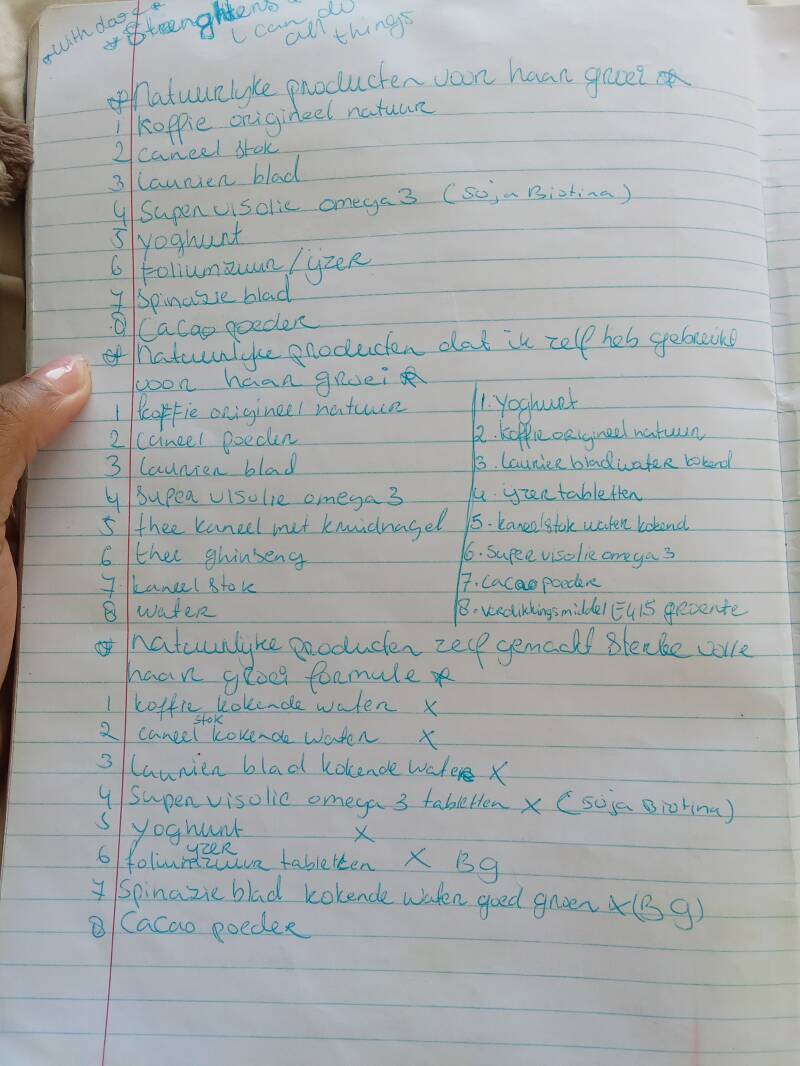 * with
* Strenghtens
i can do
all things
* Natuurlyke producten voor haar groei *
1 Koffie origineel natuur
2 caneel stok
3 Laurier blad
4 Super visolie omega 3 (Soja Biotina)
5 yoghurt
6 Foliumzuur / ijzer
7 Spinazie blad
8 Cacao poeder
* Natuurlyke producten dat ik zelf heb gebruikt
voor haar groei *
1 koffie origineel natuur
2 caneel poeder
3 Laurier blad
4 super visolie omega 3
5 thee kaneel met kruidnagel
6 thee ghinseng
7 kaneel stok
8 water
1. yoghurt
2. koffie origineel natuur
3. Laurier blad water kokend
4. ijzer tabletten
5. kaneel stok water kokend
6. super visolie omega 3
7. cacao poeder
8. verdikkingsmiddel E415 groente
* natuurlyke producten zelf gemackt sterke volle
haar groei formule *
1 koffie kokende water x
2 caneel stok kokende water x
3 Laurier blad kokende water x
4 Super visolie omega 3 tabletten x (Soja Biotina)
5 yoghurt x
6 foliumzuur yzer tabletten x Bg
7 Spinazie blad kokende water goed groen x (Bg)
8 Cacao poeder